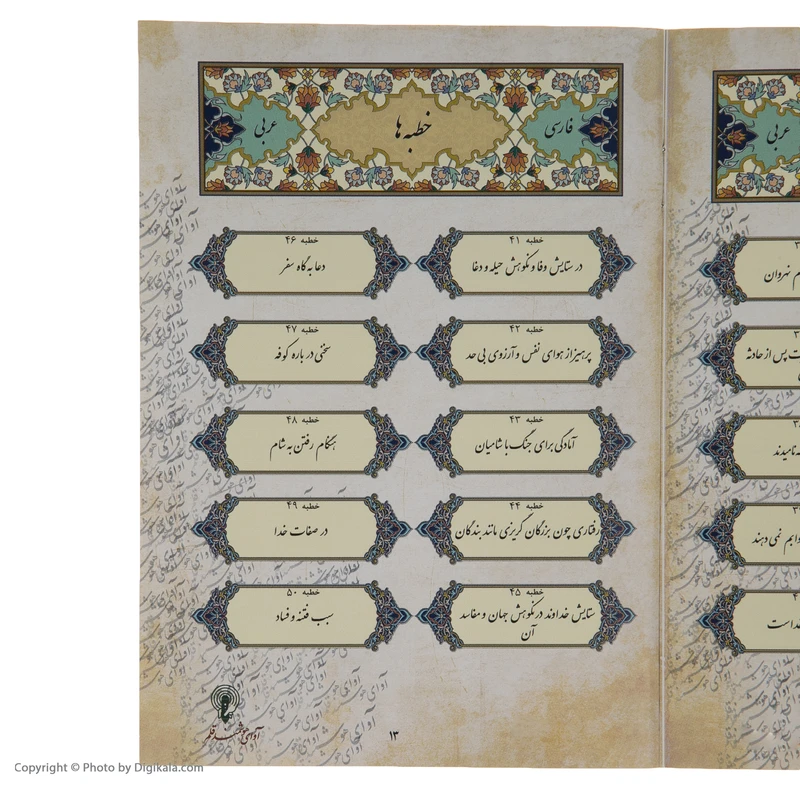 فارسی
خطبه ها
عربی
خطبه ۴۱
در ستایش وفا و نکوهش حیله و دغا
خطبه ۴۲
پرهیز از هوای نفس و آرزوی بی حد
خطبه ۴۳
آمادگی برای جنگ با شامیان
خطبه ۴۴
رفتاری چون بزرگان گریزی مانند بندگان
خطبه ۴۵
ستایش خداوند در نکوهش جهان و مفاسد
آن
خطبه ۴۶
دعا به گاه سفر
خطبه ۴۷
سخنی درباره کوفه
خطبه ۴۸
هنگام رفتن به شام
خطبه ۴۹
در صفات خدا
خطبه ۵۰
سبب فتنه و فساد
۱۳
آوای هوشمند قلم
عربی
نهروان
ت پس از حادثه
نامیدند
نمی دهند
خداست
Copyright © Photo by Digikala.com